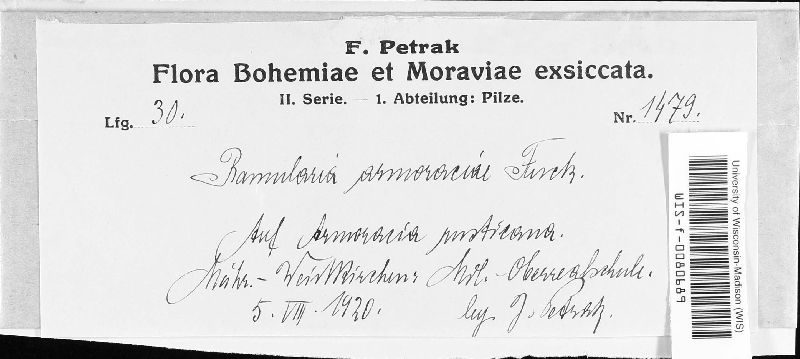 F. Petrak
Flora Bohemiae et Moraviae exsiccata.
II. Serie. — 1. Abteilung: Pilze.
Lfg. 30.
Nr. 1479.
Ramularia armoraciae Fuck.
Auf Armoracia rusticana.
Mähr.-Weisskirchen: Mil.-Oberrealschule.
5. VIII. 1920.
leg. J. Petrak.
University of Wisconsin-Madison (WIS)
WIS-f-0080689